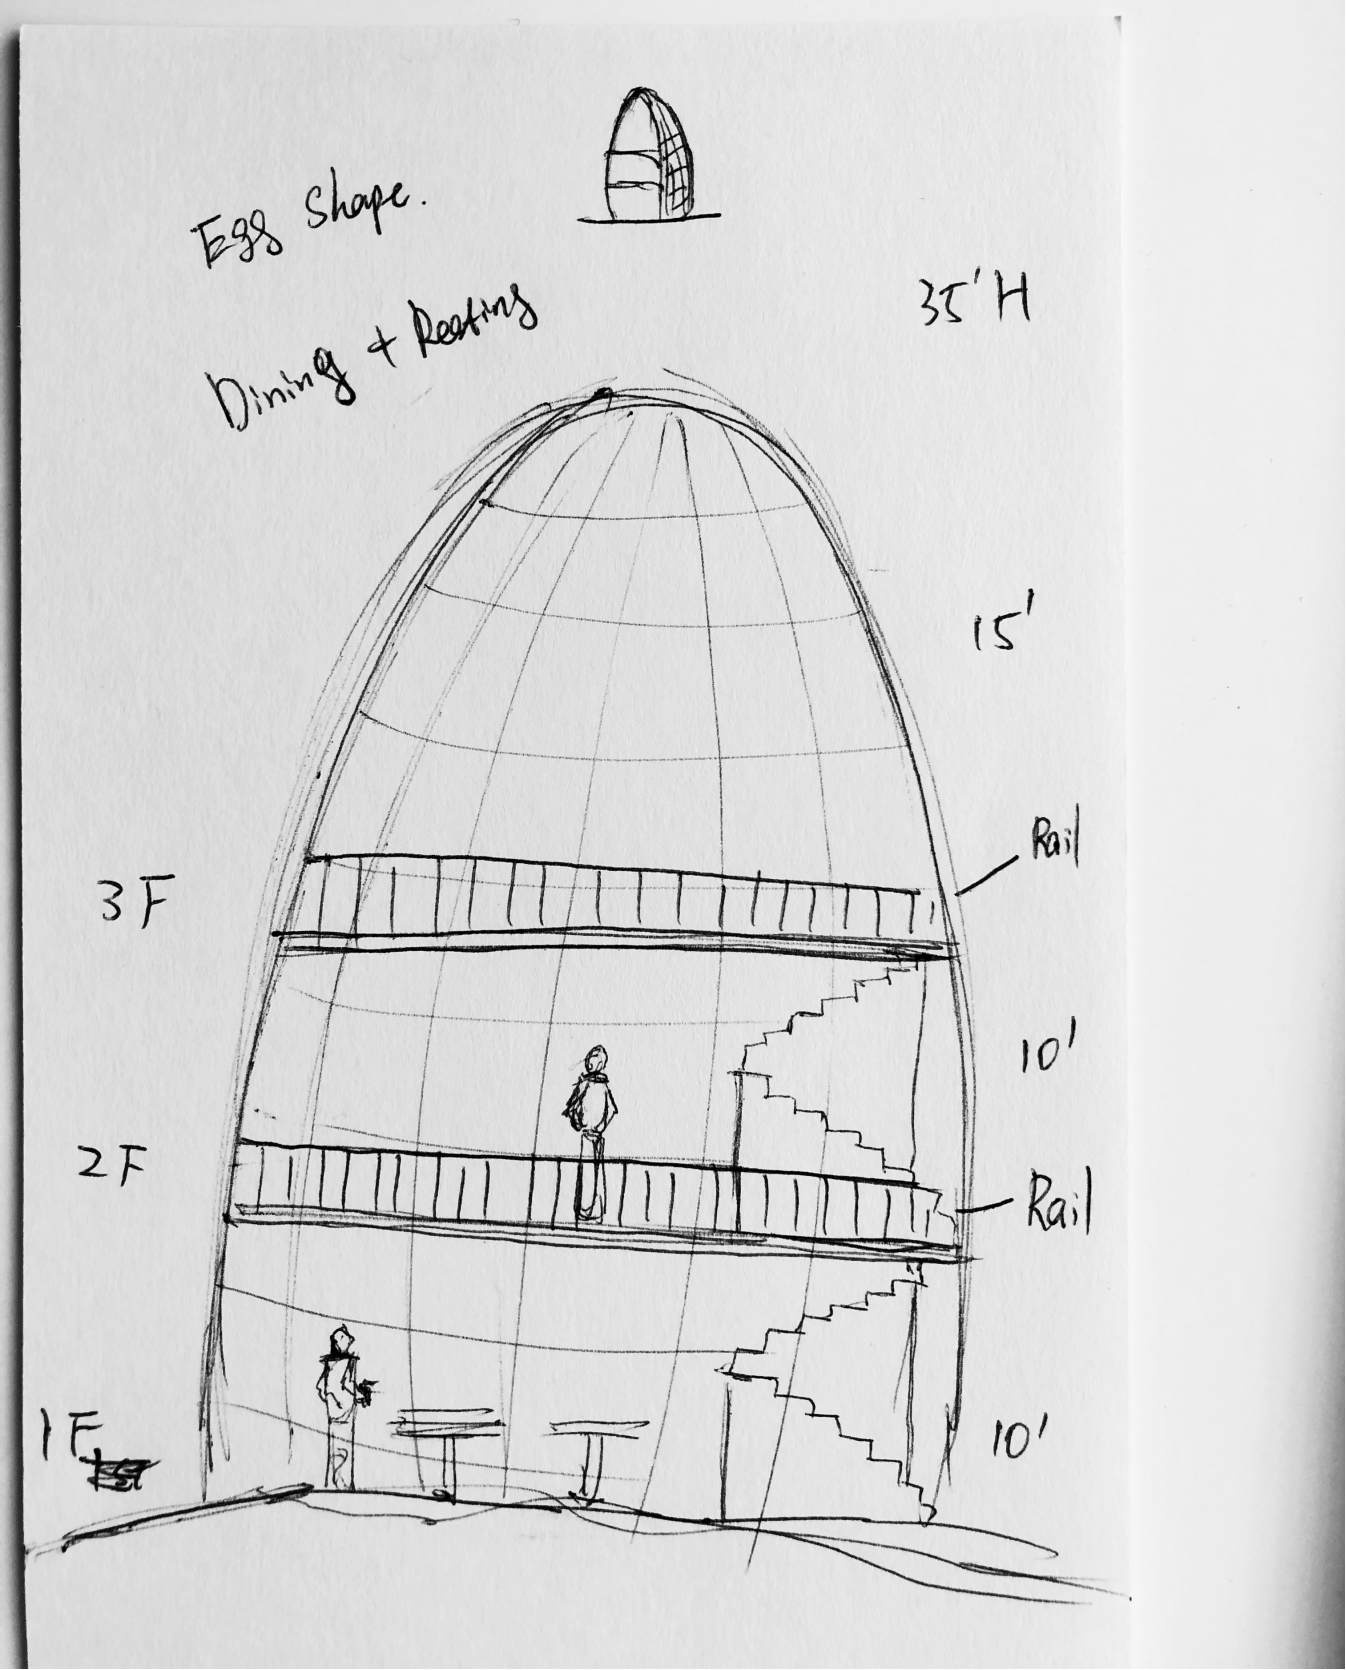 Egg Shape.
Dining + Resting
35' H
15'
Rail
3F
10'
2F
Rail
1F
10'